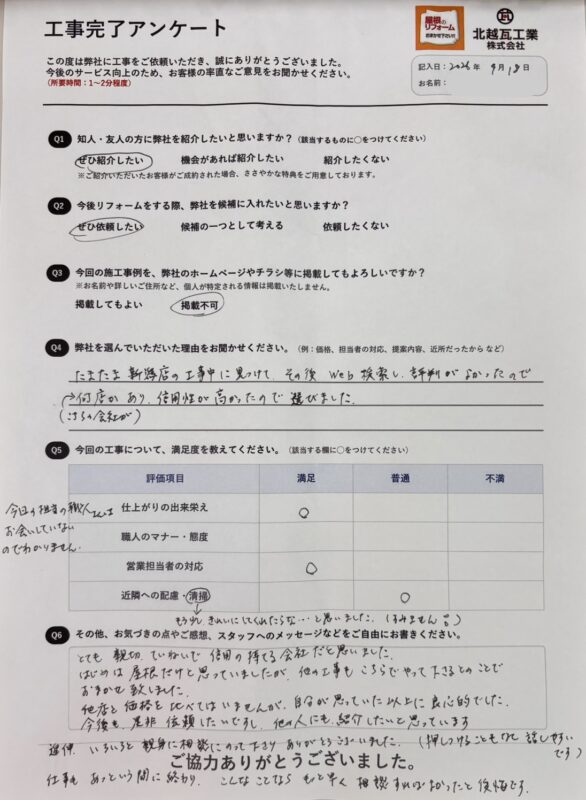 工事完了アンケート
屋根の
リフォーム
おまかせ下さい!!
北越瓦工業
株式会社
この度は弊社に工事をご依頼いただき、誠にありがとうございました。
今後のサービス向上のため、お客様の率直なご意見をお聞かせください。
(所要時間：1～2分程度)
記入日：2025年 9月18日
お名前：
Q1 知人・友人の方に弊社を紹介したいと思いますか？（該当するものに○をつけてください）
ぜひ紹介したい 機会があれば紹介したい 紹介したくない
※ご紹介いただいたお客様がご成約された場合、ささやかな特典をご用意しております。
Q2 今後リフォームをする際、弊社を候補に入れたいと思いますか？
ぜひ依頼したい 候補の一つとして考える 依頼したくない
Q3 今回の施工事例を、弊社のホームページやチラシ等に掲載してもよろしいですか？
※お名前や詳しいご住所など、個人が特定される情報は掲載いたしません。
掲載してもよい 掲載不可
Q4 弊社を選んでいただいた理由をお聞かせください。（例：価格、担当者の対応、提案内容、近所だったから など）
たまたま 新潟店の工事中に見つけて、その後 Web検索し、評判がよかったので
→何店かあり、信用性が高かったので 選びました。
(こちらの会社が)
Q5 今回の工事について、満足度を教えてください。（該当する欄に○をつけてください）
評価項目 満足 普通 不満
仕上がりの出来栄え ○
職人のマナー・態度
営業担当者の対応 ○
近隣への配慮・清掃 ○
今日の担当の職人さんは
お会いしていない
のでわかりません。
もう少しきれいにしてくれたらな…と思いました。(すみません
Q6 その他、お気づきの点やご感想、スタッフへのメッセージなどをご自由にお書きください。
とても 親切、ていねいで 信用の持てる会社だと思いました。
はじめは 屋根だけと思っていましたが、他の工事も こちらでやって下さるとのことで
おまかせ致しました。
他店と価格を比べてはいませんが、自分が思っていた以上に良心的でした。
今後も、是非 依頼したいですし、他の人にも、紹介したいと思っています
追伸 いろいろと親身に相談にのって下さり ありがとうございました。(押しつけることもなく 話しやすい
です)
ご協力ありがとうございました。
仕事も あっという間に終わり、こんなことなら もっと早く 相談すればよかったと後悔です。